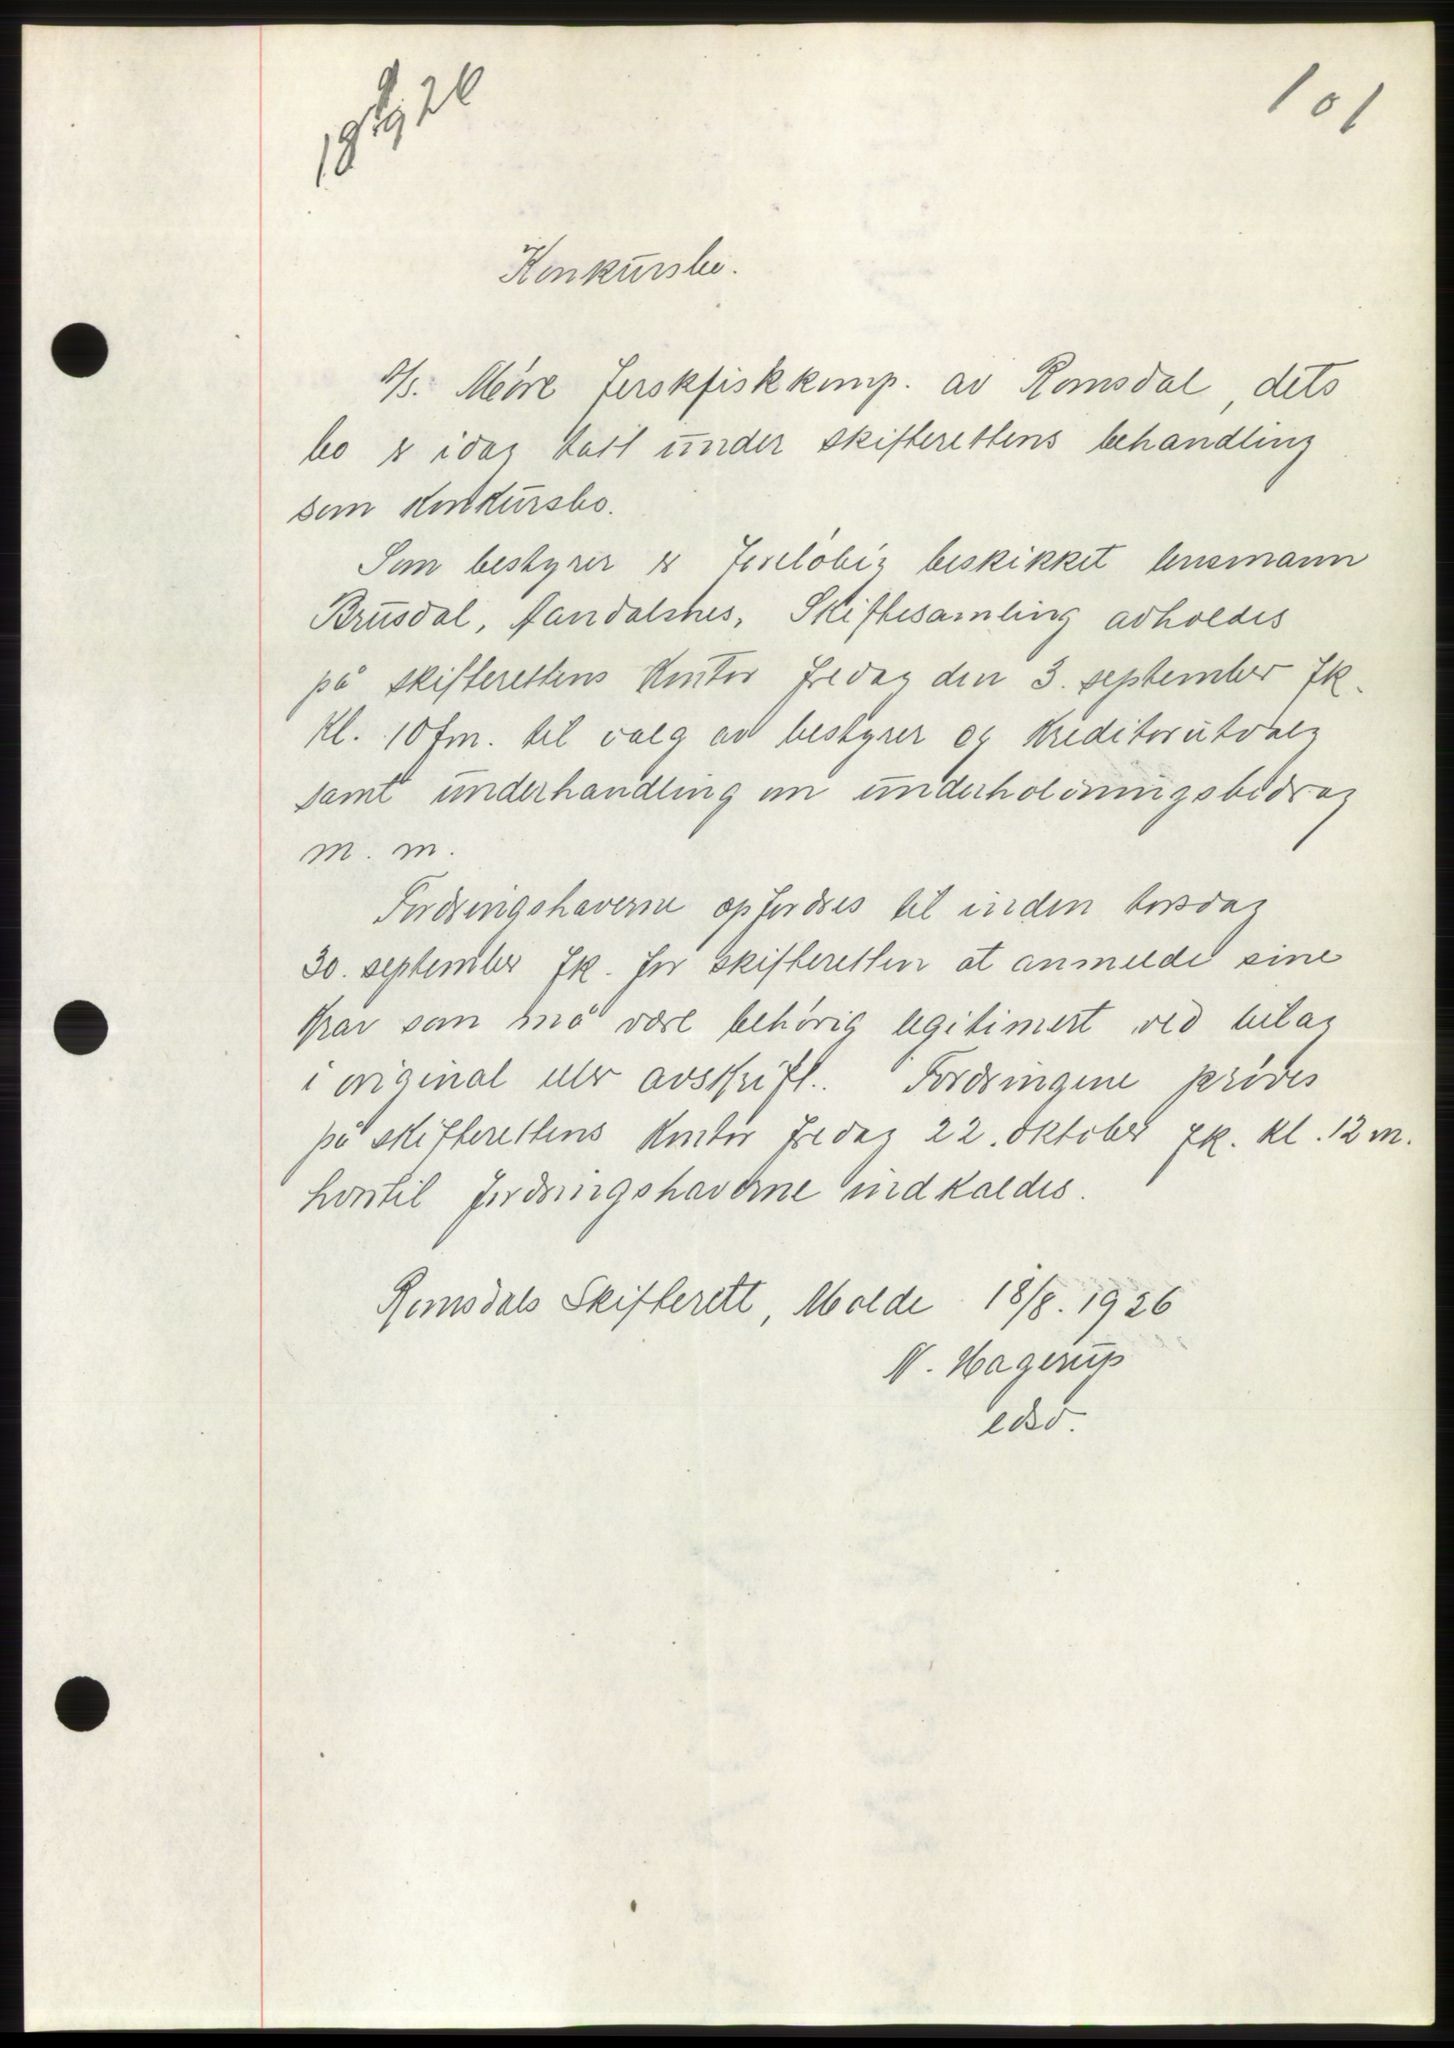 18/8 1926
101
Konkursbo.
A/S. Møre Ferskfiskkomp. av Romsdal, dets
bo er idag tatt under skifterettens behandling
som konkursbo.
Som bestyrer er foreløbig beskikket lensmann
Brusdal, Aandalsnes, Skiftesamling avholdes
på skifterettens kontor fredag den 3. september fk.
kl. 10 fm. til valg av bestyrer og kreditorutvalg
samt underhandling om underholdningsbidrag
m. m.
Fordringshaverne opfordres til inden torsdag
30. september fk. for skifteretten at anmelde sine
krav som må være behørig legitimert ved bilag
i original eller avskrift. Fordringene prøves
på skifterettens kontor fredag 22. oktober fk. kl. 12 m.
hvortil fordringshaverne indkaldes.
Romsdals Skifterett, Molde 18/8. 1926
N. Hagerup
edsv.